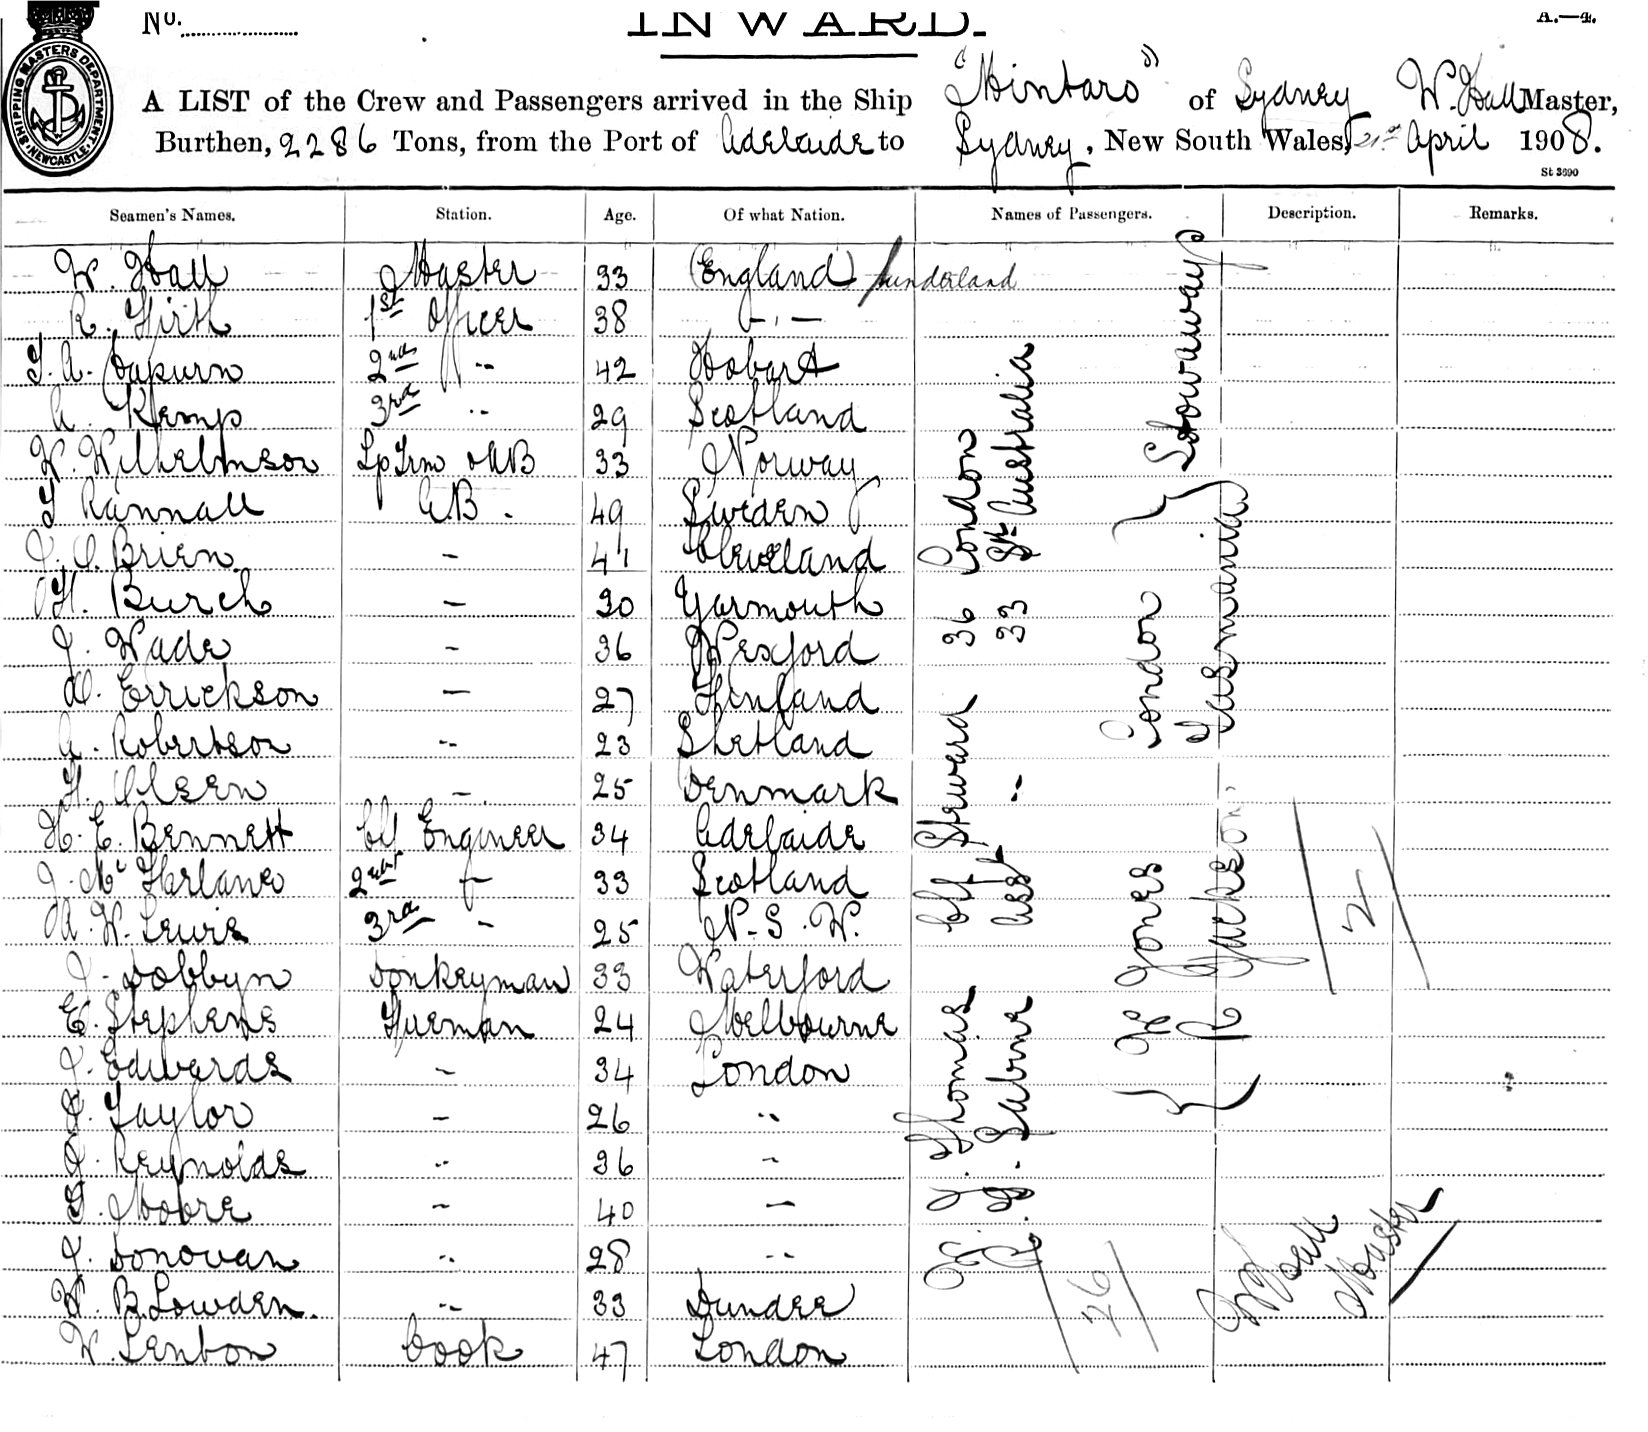 No.
INWARD.
A.—4.
SHIPPING MASTERS DEPARTMENT NEWCASTLE
A LIST of the Crew and Passengers arrived in the Ship "Mintaro" of Sydney W. Hall Master,
Burthen, 2286 Tons, from the Port of Adelaide to Sydney, New South Wales, 21st April 1908.
St 3690
Seamen's Names. Station. Age. Of what Nation. Names of Passengers. Description. Remarks.
W. Hall Master 33 (England) Sunderland
R. Firth 1st Officer 38 – , –
T. A. 2nd -- 42 Hobart
A. Kemp 3rd -- 29 Scotland
W. Wilhelmson Lp Trm & AB 33 Norway
T Rannall A.B. 49 Sweden
J. O'Brien - 41 Cleveland
H. Burch - 30 Yarmouth
J. Wade - 36 Wexford
Errickson - 27 Finland
A. Robertson -- 23 Shetland
H. Olsen - 25 Denmark
H. E. Bennett Chf Engineer 34 Adelaide
J. McFarlane 2nd - 33 Scotland
A. W. Lewis 3rd - 25 N.S.W.
J. Dobbyn Donkeyman 33 Waterford
E. Stephens Fireman 24 Melbourne
J. Edwards - 34 London
Taylor - 26 --
J. Reynolds -- 36 -
T. Moore - 40 -
J. Donovan -- 28 --
W. B. Lowden. -- 33 Dundee
W. Lenton Cook 47 London
J. Thomas Chf Steward 36 London
R. G. Sabine Asst -- 33 Sth Australia
26
{ H Jones London } Stowaways
{ R Jackson Tasmania
2
W Hall
Master